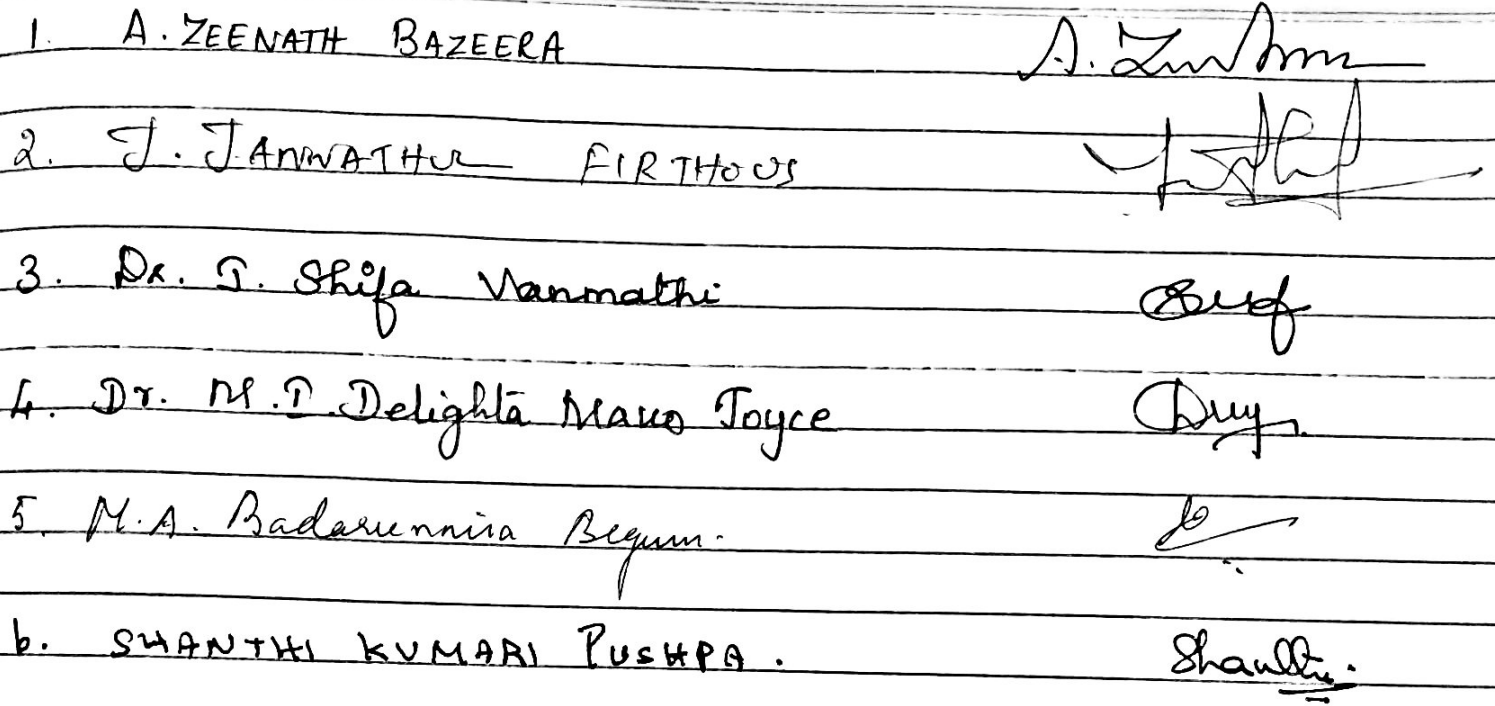 1. A. ZEENATH BAZEERA
2. J. JANNATHUL FIRTHOUS
3. Dr. J. Shifa Vanmathi
4. Dr. M.I. Delighta Mano Joyce
5. M.A. Badarunnisa Begum.
6. SHANTHI KUMARI PUSHPA. Shanthi.